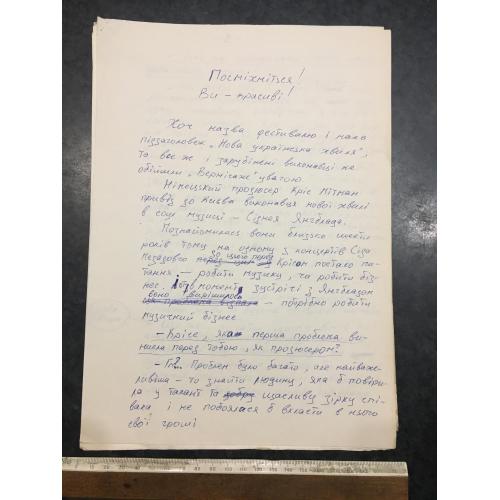 Посміхніться!
Ви – красиві!
Хоч назва фестивалю і мала
підзаголовок „Нова українська хвиля",
та все ж і зарубіжні виконавці не
обійшли „Вернісаж" увагою.
Німецький продюсер Кріс Пітман
привіз до Києва виконавця нової хвилі
в соул музиці – Сіднея Янгблада.
Познайомилися вони близько шести
років тому на одному з концертів Сіда
Незадовго до цього перед Крісом постало пи-
тання – робити музику, чи робити біз-
нес. І в момент зустрічі з Янгбладом
воно вирішилося – потрібно робити
музичний бізнес
– Крісе, яка перша проблема ви-
никла перед тобою, як продюсером?
– Проблем було багато, але найваж-
ливіша – то знайти людину, яка б повіри-
ла у талант та щасливу зірку спі-
вака і не побоялася б вкласти в нього
свої гроші